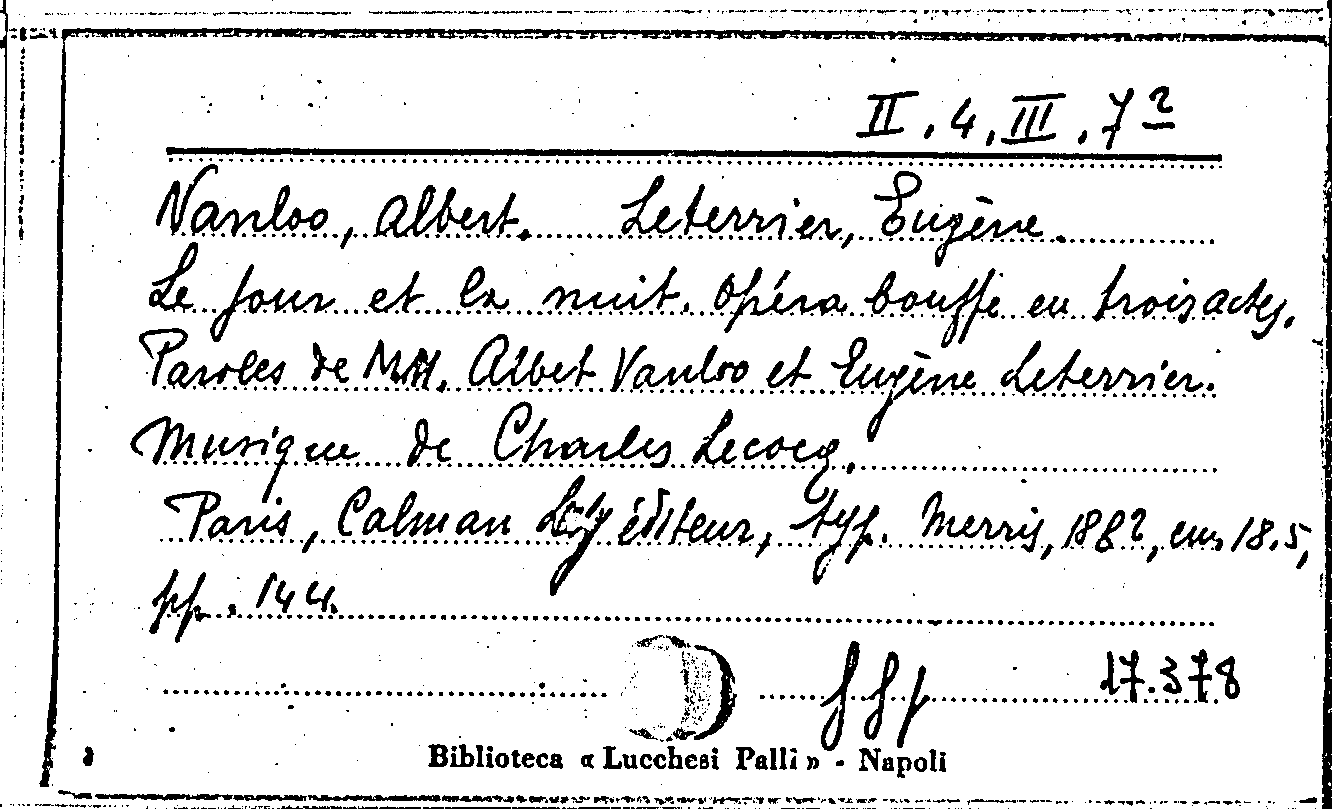 II. 4. III. 7²
Vanloo, Albert. Leterrier, Eugène.
Le jour et la nuit. Opéra bouffe en trois actes.
Paroles de MM. Albet Vanloo et Eugène Leterrier.
Musique de Charles Lecocq.
Paris, Calman Lévy éditeur, typ. Merris, 1882, cm. 18.5,
pp. 144.
17.378
Biblioteca « Lucchesi Palli » - Napoli